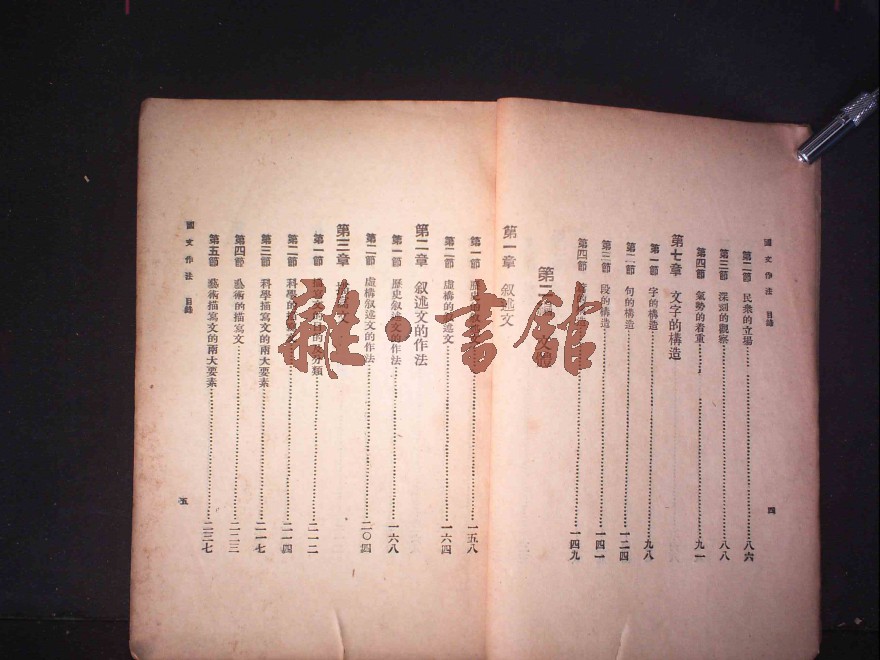 國文作法 目錄
第二節 民衆的立場 八六
第三節 深刻的觀察 八八
第四節 氣勢的着重 九一
第七章 文字的構造
第一節 字的構造 九八
第二節 句的構造 一二四
第三節 段的構造 一四一
第四節 的構造 一四九
四
第二 文
第一章 叙述文
第一節 歷史叙述文 一五八
第二節 虛構的叙述文 一六四
第二章 叙述文的作法
第一節 歷史叙述文的作法 一六八
第二節 虛構叙述文的作法 二〇四
第三章 描寫文
第一節 描寫文的目的及分類 二一二
第二節 科學的描寫文 二一四
第三節 科學描寫文的兩大要素 二一七
第四節 藝術的描寫文 二二三
第五節 藝術描寫文的兩大要素 二三七
國文作法 目錄
五
雜·書館